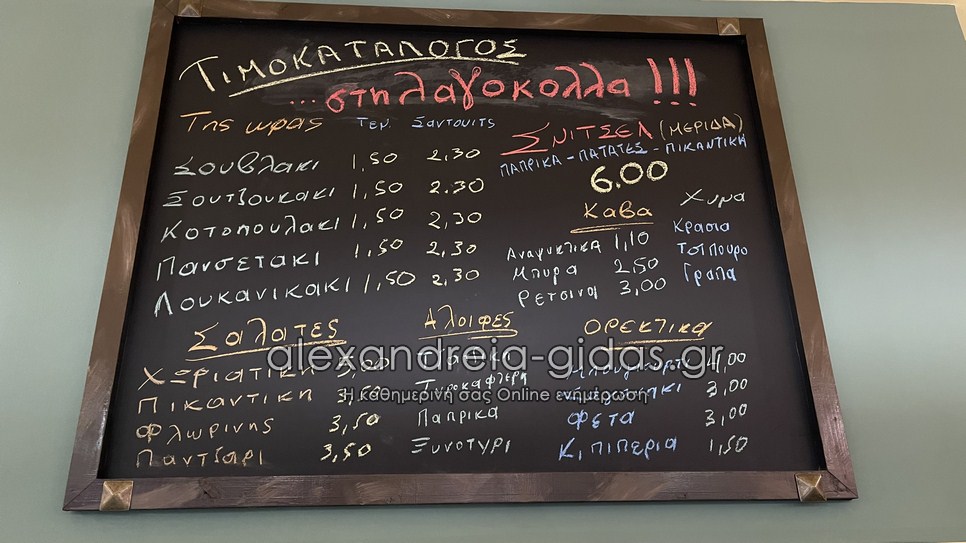 ΤΙΜΟΚΑΤΑΛΟΓΟΣ
...στη λαγοκολλα !!!
Της ωρας Τεμ. Σαντουιτς
Σουβλακι 1,50 2.30
Σουτζουκακι 1,50 2.30
Κοτοπουλακι 1,50 2,30
Πανσετακι 1,50 2,30
Λουκανικακι 1,50 2,30
ΣΝΙΤΣΕΛ (ΜΕΡΙΔΑ)
ΠΑΠΡΙΚΑ - ΠΑΤΑΤΕΣ - ΠΙΚΑΝΤΙΚΗ
6.00
Καβα
Αναψυκτικα 1,10
Μπυρα 2,50
Ρετσινα 3,00
Χυμα
Κρασια
Τσιπουρο
Γραπα
Σαλατες
Χωριατικη
Πικαντικη 3,50
Φλωρινης 3,50
Παντζαρι 3,50
Αλοιφες
Τυροκαφτερη
Παπρικα
Ξυνοτυρι
ΟΡΕΚΤΙΚΑ
4,00
3,00
Φετα 3,00
Κ. Πιπερια 1,50
alexandreia-gidas.gr
Η καθημερινή σας Online ενημέρωση